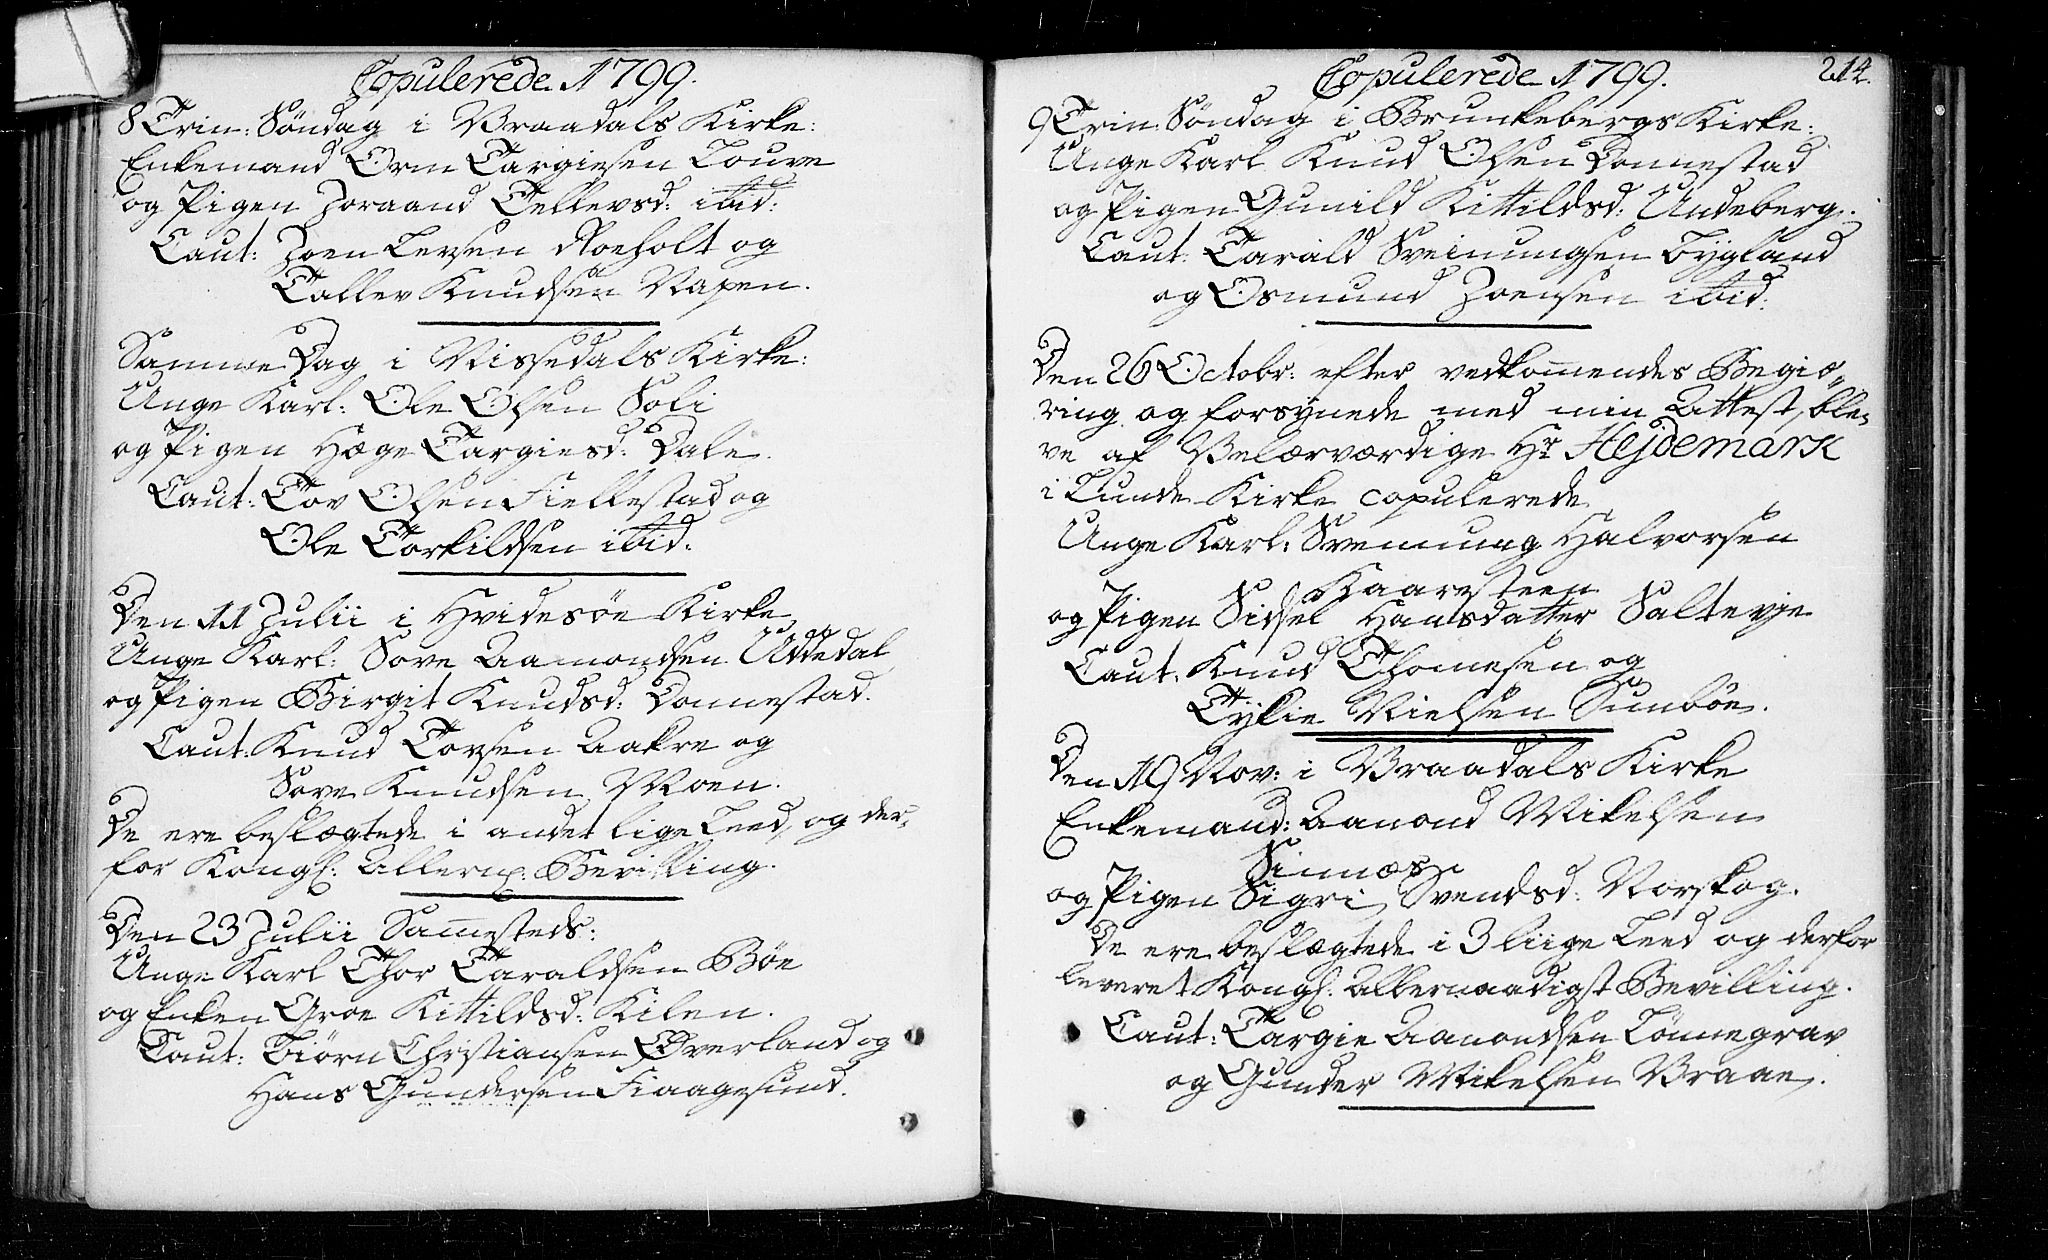 Copulerede 1799.
8 Trin: Søndag i Vraadals Kirke:
Enkemand Orm Targiesen Loure
og Pigen Joraand Tellevsd: ibid:
Caut: Joen Levsen Roeholt og
Tallev Knudsen Napen.
Samme Dag i Nissedals Kirke:
Unge Karl: Ole Olsen Soli
og Pigen Hæge Targiesd: Dale.
Caut: Tov Olsen Fiellestad og
Ole Torkildsen ibid.
Den 11 Julii i Hvidesøe Kirke
Unge Karl: Sove Aamondsen Uddedal
og Pigen Birgit Knudsd: Donnestad.
Caut: Knud Tovsen Aakre og
Sove Knudsen Moen.
De ere beslægtede i andet lige Leed, og der-
for Kongl: Allern: Bevilling.
Den 23 Julii Sam̅esteds:
Unge Karl Thor Taraldsen Bøe
og Enken Groe Kittildsd: Kilen.
Caut: Biørn Christiansen Øverland og
Hans Gundersen Fiaagesund.
Copulerede 1799.
214.
9 Trin: Søndag i Brunkebergs Kirke:
Unge Karl Knud Olsen Donnestad
og Pigen Gunild Kittildsd: Undeberg.
Caut: Tarald Sveinungsen Bÿgland
og Osmund Joensen ibid.
Den 26 Octobr: efter vedkom̅endes Begiæ-
ring og forsynede med min Attest, ble-
ve af Velærværdige Hr Hejdemark
i Lunde Kirke copulerede
Unge Karl: Svennung Halvorsen
Kaasesteen
og Pigen Sidsel Hansdatter Saltevje
Caut: Knud Thomesen og
Tÿkie Nielsen Sunbøe.
Den 19 Nov: i Vraadals Kirke
Enkemand: Aanond Mikelsen
Sinnæs
og Pigen Sigri Svendsd: Norskog.
De ere beslægtede i 3 liige Leed og derfor
leveret Kongl: Allernaadigst Bevilling.
Caut: Targie Aanondsen Lønnegrav
og Gunder Mikelsen Vraae.